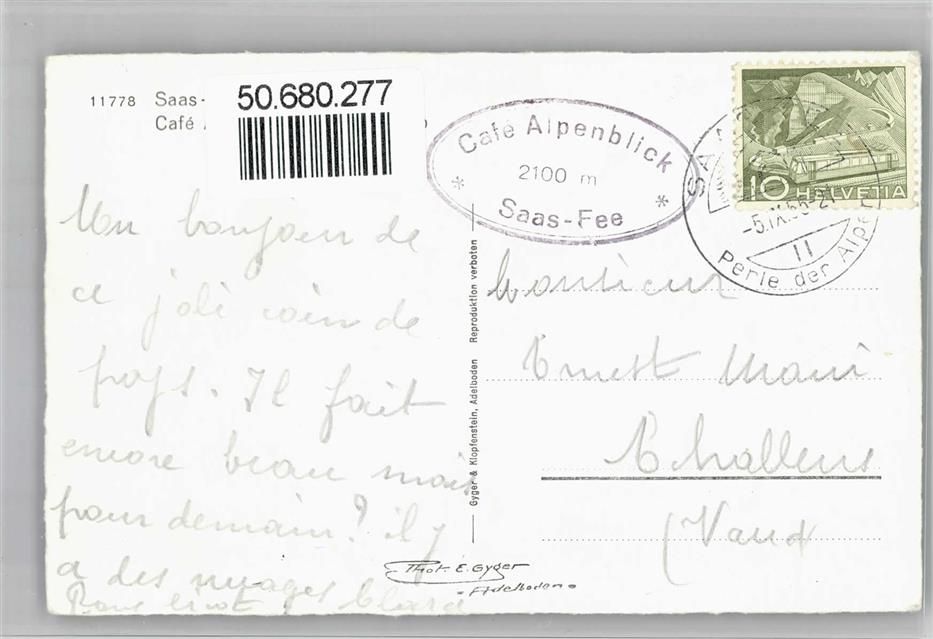 50.680.277
11778 Saas-
Café
Café Alpenblick
2100 m
Saas-Fee
10 HELVETIA
SAA
-5.IX.55-21
11
Perle der Alpen
Un bonjour de
ce joli coin de
pays. Il fait
encore beau mais
pour demain? il y
a des nuages
Gyger & Klopfenstein, Adelboden Reproduktion verboten
Monsieur
Ernest
Echallens
(Vaud
Phot. E. Gyger
- Adelboden -